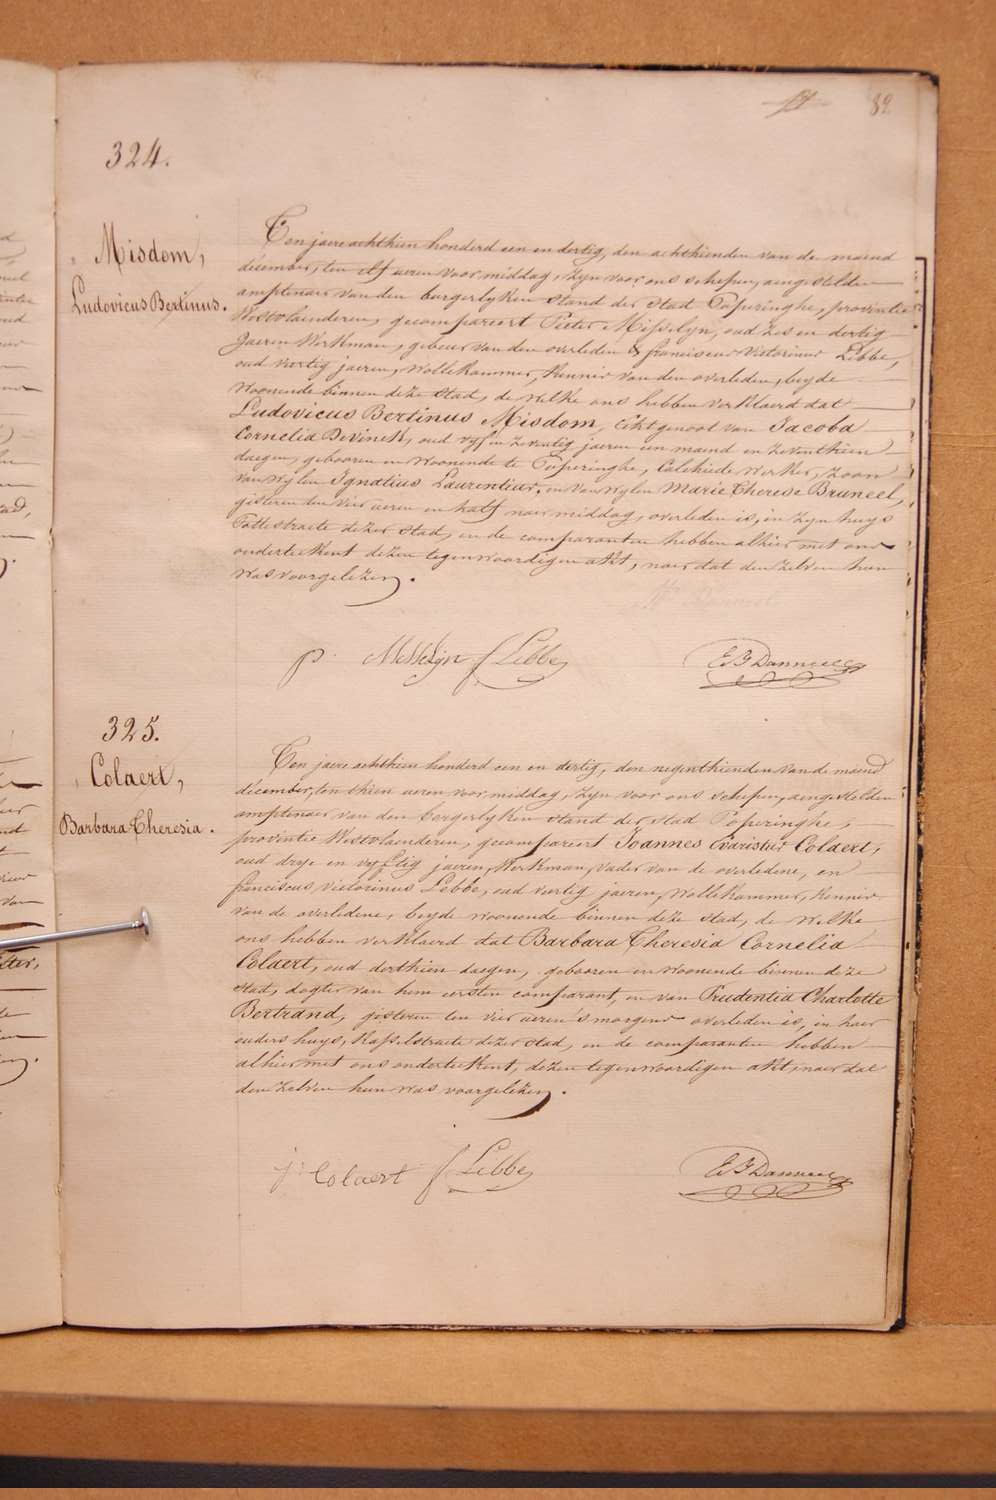 82
324.
Misdom,
Ludovicus Bertinus.
Ten jaere achthien honderd een en dertig, den achthienden van de maend
december, ten elf ueren voor middag, zyn voor ons schepen, aengestelden
amptenaer van den burgerlyken stand der stad Poperinghe, provintie
Westvlaenderen, gecompareert Pieter Misselyn, oud zes en dertig
Jaeren Werkman, gebeur van den overleden & franciscus Victorinus Lebbe,
oud viertig jaeren, Wollekammer, Kennis van den overleden, beyde
woonende binnen deze stad, de welke ons hebben verklaerd dat
Ludovicus Bertinus Misdom, Echtgenoot van Jacoba
Cornelia Devinck, oud vyf en zeventig jaeren een maend en zeventhien
daegen, gebooren en woonende te Poperinghe, werker, zoon
van wylen Ignatius Laurentius, en van wylen Marie Therese Bruneel,
gisteren ten vier ueren en half naer middag, overleden is, in zyn huys
Pottestraete dezer stad, en de comparanten hebben alhier met ons
onderteekent dezen tegenwoordigen akt, naer dat den zelven hun
was voorgelezen.
p. Messelyn f Lebbe
325.
Colaert,
Barbara Theresia.
Ten jaere achthien honderd een en dertig, den negenthienden van de maend
december, ten thien ueren voor middag, zyn voor ons schepen, aengestelden
amptenaer van den burgerlyken stand der stad Poperinghe,
provintie Westvlaenderen, gecompareert Joannes Evaristus Colaert,
oud drye en vyftig jaeren, Werkman, vader van de overledene, en
franciscus victorinus Lebbe, oud vertig jaeren, Wollekammer, Kennis
van de overledene, beyde woonende binnen deze stad, de welke
ons hebben verklaerd dat Barbara Theresia Cornelia
Colaert, oud derthien daegen, gebooren en woonende binnen deze
stad, dogter van hem eersten comparant, en van Prudentia Charlotte
Bertrand, gisteren ten vier ueren 's morgens overleden is, in haer
ouders huys, Kasselstraete dezer stad, en de comparanten hebben
alhier met ons onderteekent, dezen tegenwoordigen akt, naer dat
den zelven hun was voorgelezen.
j: Colaert f Lebbe